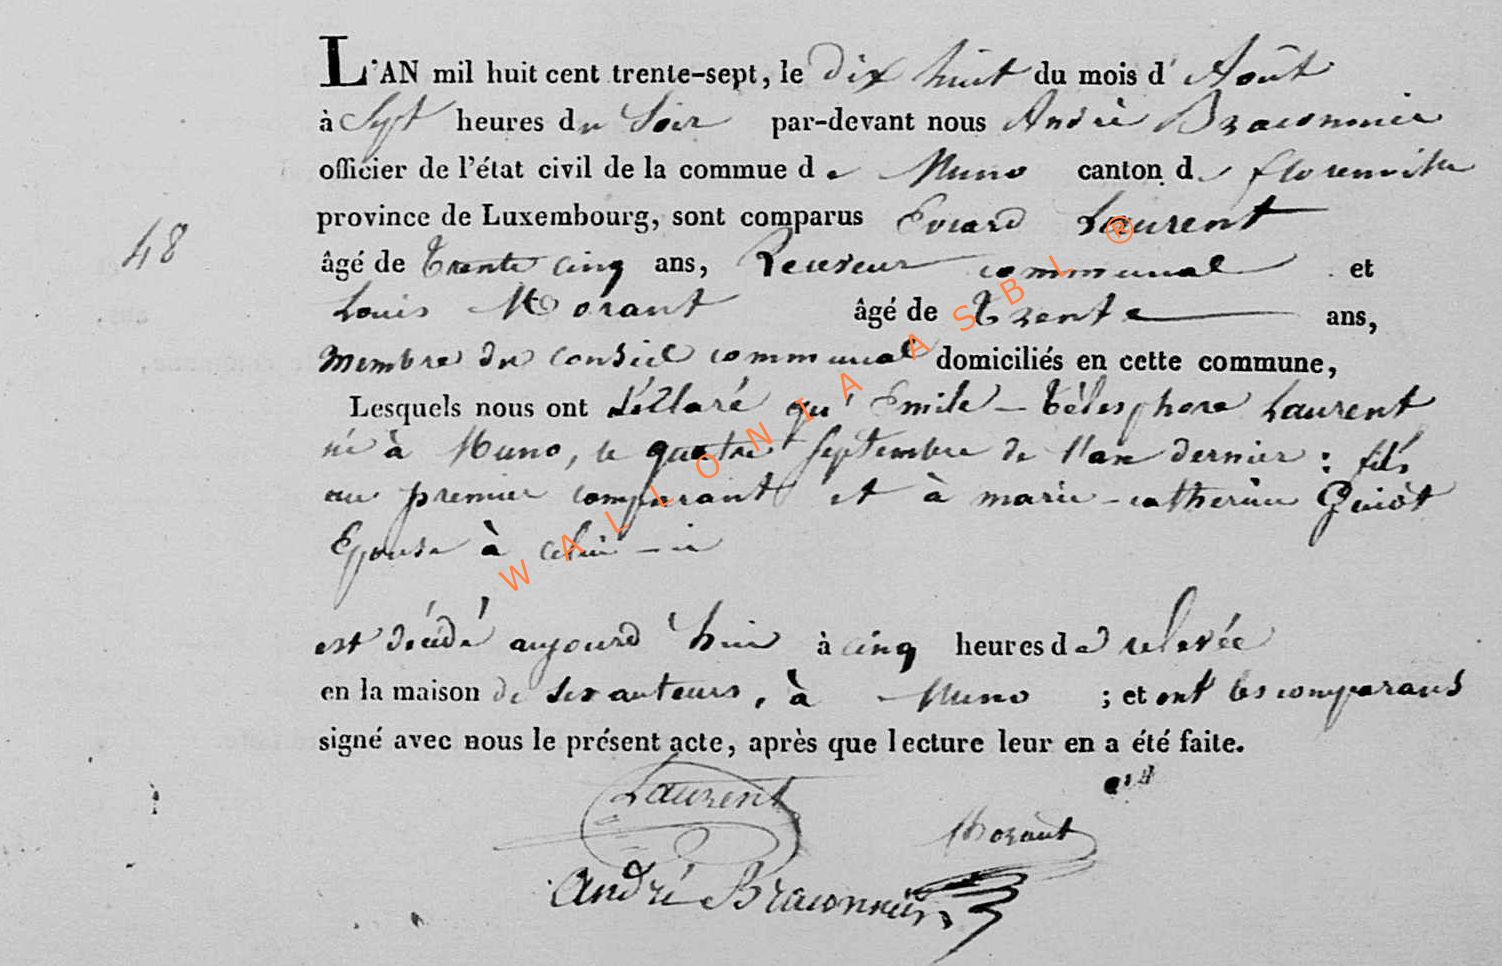 L'AN mil huit cent trente-sept, le dix huit du mois d' Août
à Sept heures du Soir par-devant nous André Braconnier
officier de l'état civil de la commue de Muno canton de florenville
province de Luxembourg, sont comparus Evrard Laurent
48
âgé de Trente cinq ans, Receveur communal et
Louis Morant âgé de Trente ans,
Membre du conseil communal domiciliés en cette commune,
Lesquels nous ont déclaré qu' Emile - Télesphore Laurent
né à Muno, le quatre Septembre de l'an dernier : fils
au premier comparant et à marie - catherine
Epouse à celui - ci
est décédé aujourd'hui à cinq heures de relevée
en la maison de ses auteurs, à Muno ; et ont les comparans
signé avec nous le présent acte, après que lecture leur en a été faite.
Laurent
Morant
André Braconnier
WALLONIA ASBL ®